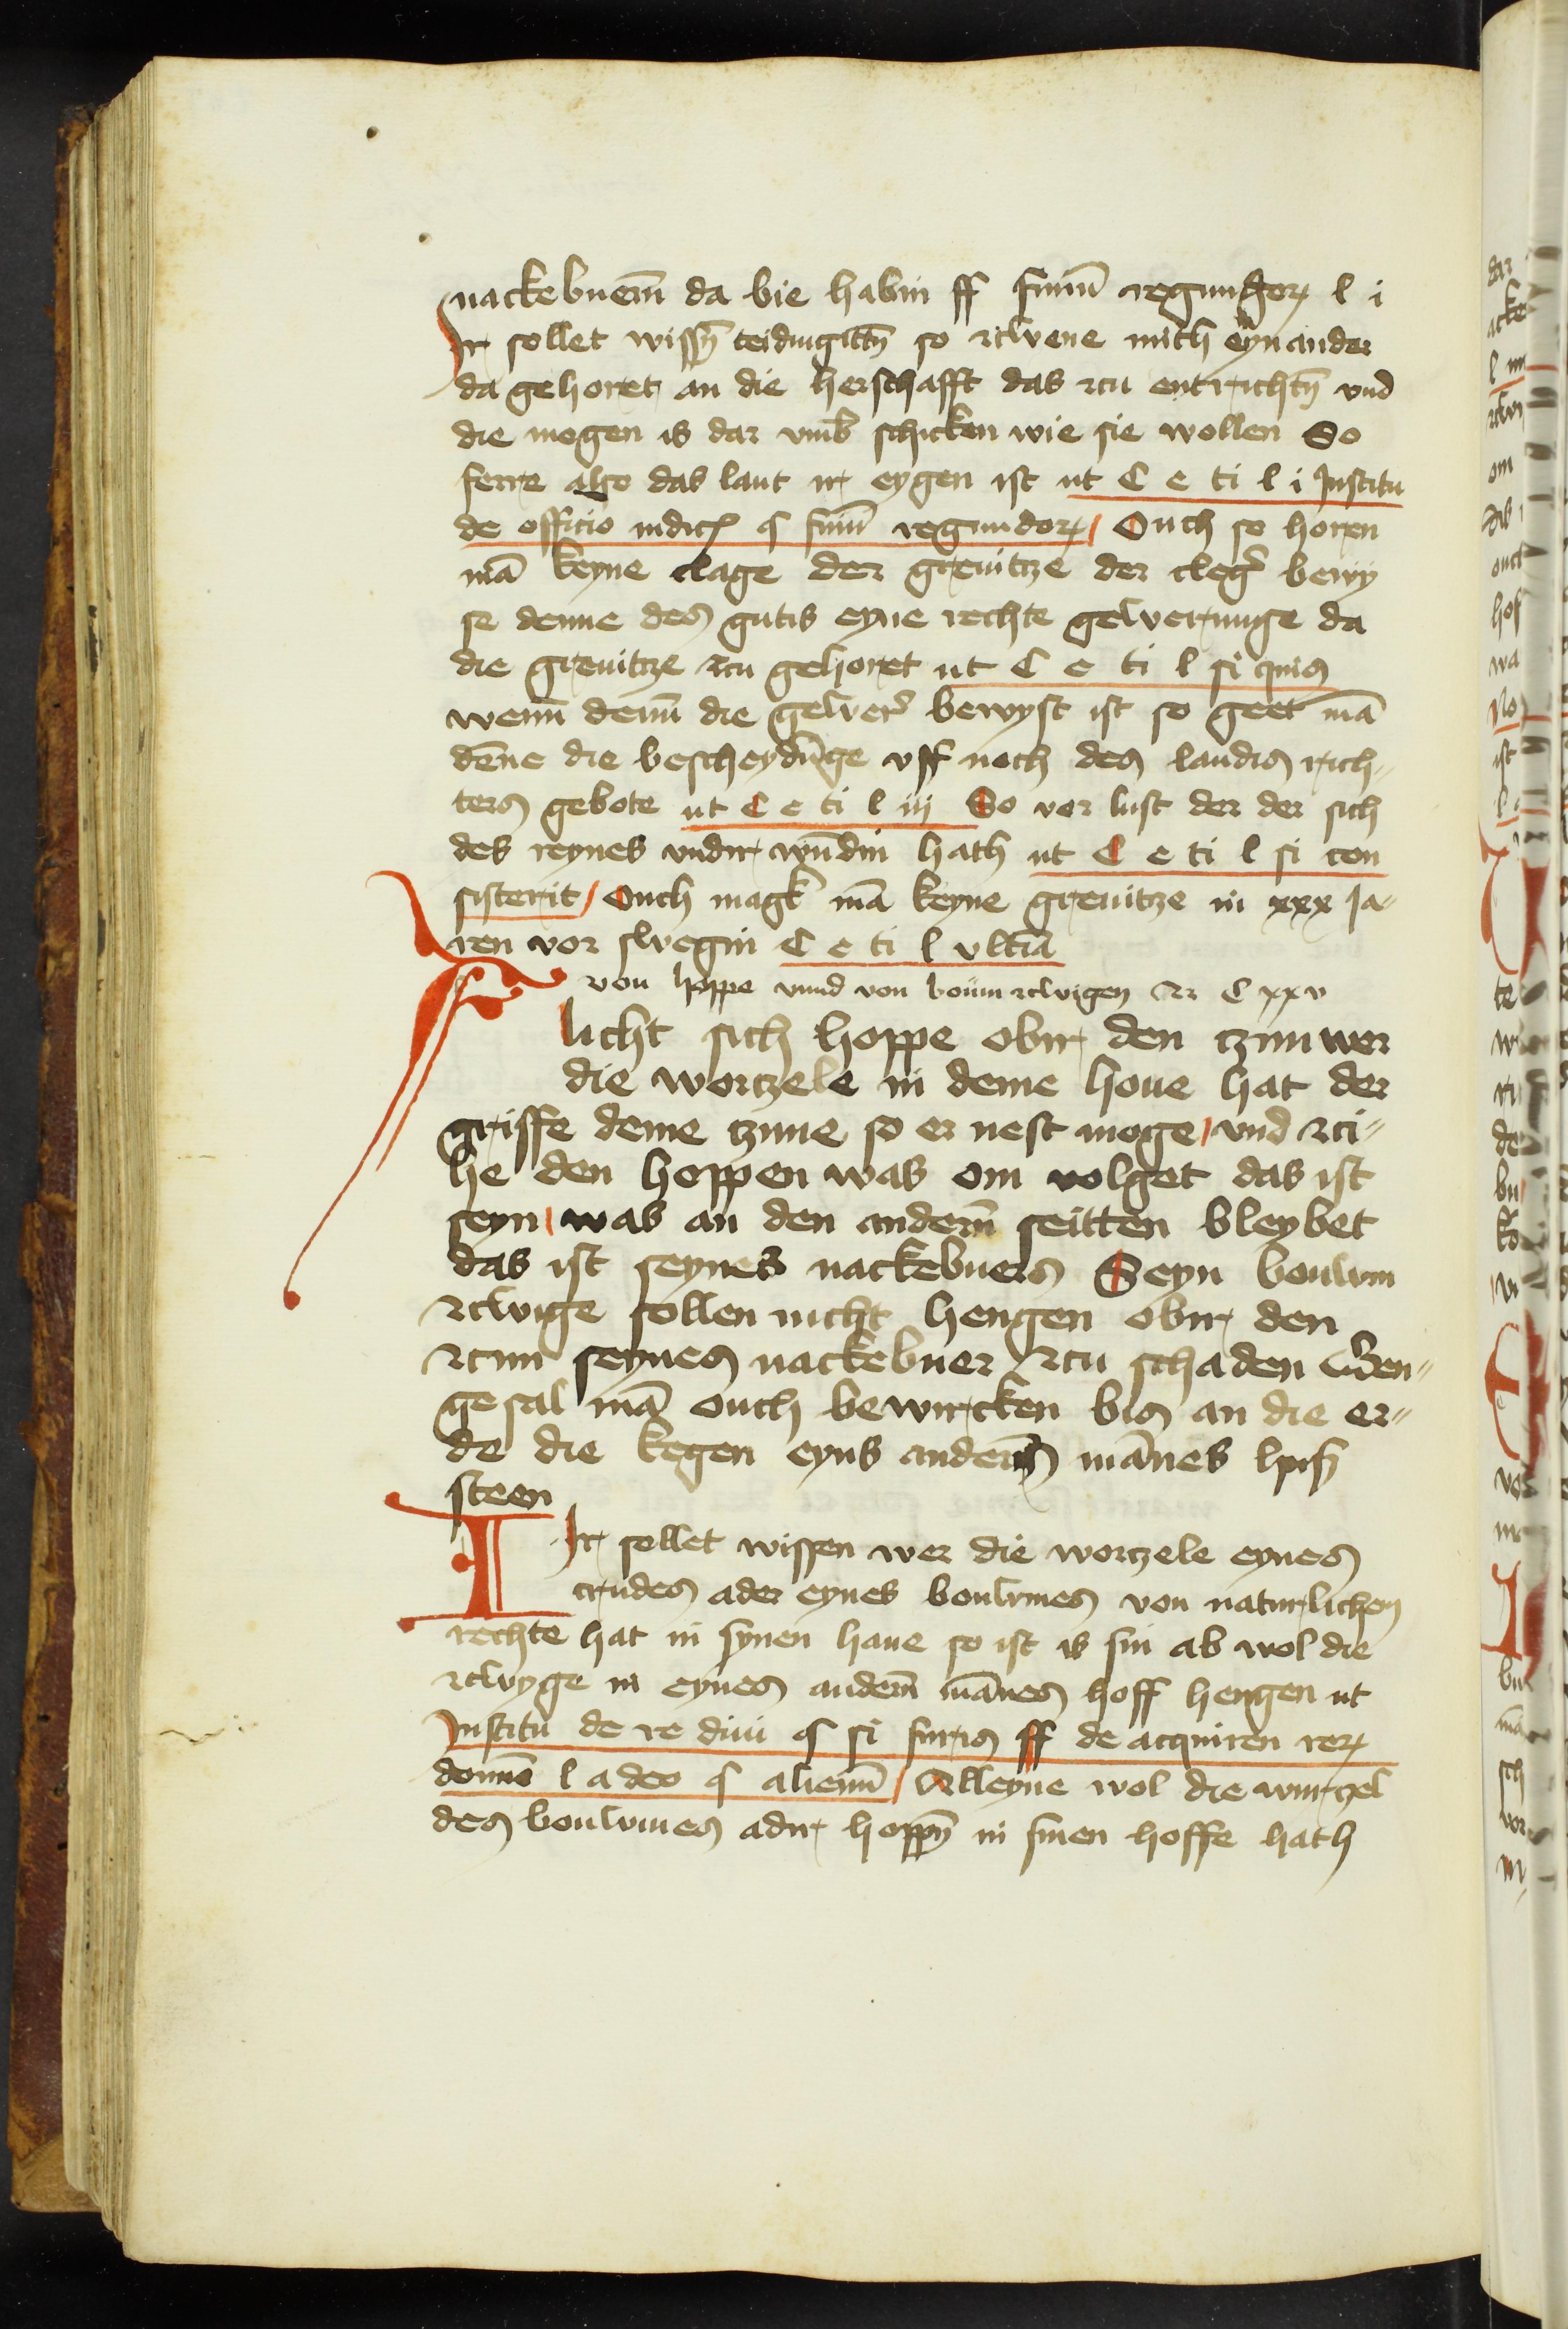 nackebuern̄ da bie habin ff finiū regundoꝝ l i
Ir sollet wissn̄ teidingittn̄ so zcwene mith eynander
da gehoret an die herschafft das zcu entrichtn̄ vnd
die mogen is dar vmb schicken wie sie wollen So
ferre also das lant ir eygen ist ut C e ti l i Institu
de officio iudic̄ § finiū regundoꝝ Ouch so horen
mā keyne clage der grenitze der cleḡ bewy
se denne des gutis eyne rechte gewerunge da
die grenitze zcu gehoret ut C e ti l si quis
wenn̄ denn̄ die gewer̄ bewyst ist so geet mā
dēne die bescheydūge vff noch des landis rich-
ters gebote ut C e ti l iij So vor lust der der sich
des reynes vndir wūdin hath ut C e ti l si con
sisterit Ouch magk mā keyne grenitze in xxx Ja-
ren vor swegin C e ti l vltīa
von hoppe vnnd von boum zcwigen C xxv
F licht sich hoppe obir den tzun wer
die wortzele in deme houe hat der
griffe deme tzune so er nest moge vnd zci-
he den hoppen was om volget das ist
seyn was an den andern̄ seitten bleybet
das ist seynes nackebuers Seyn bouwm
zcwige sollen nicht hengen obir den
zcun seynes nackebuer zcu schaden
gesal mā ouch bewircken bis an die er-
de die kegen eyns anders mānes
steen
I Ir sollet wissen wer die wortzele eynes
crudes ader eynes bouwmes von naturlichen
rechte hat in synen haue so ist is sin ab wol die
zcwyge in eynes andern̄ mānes hoff hengen ut
Institu de re diui § si furis ff de acquiren reꝝ
domīo l adeo § alienū Alleyne wol die wurtzel
des bouwmes adir hoppn̄ in sinen hoffe hath